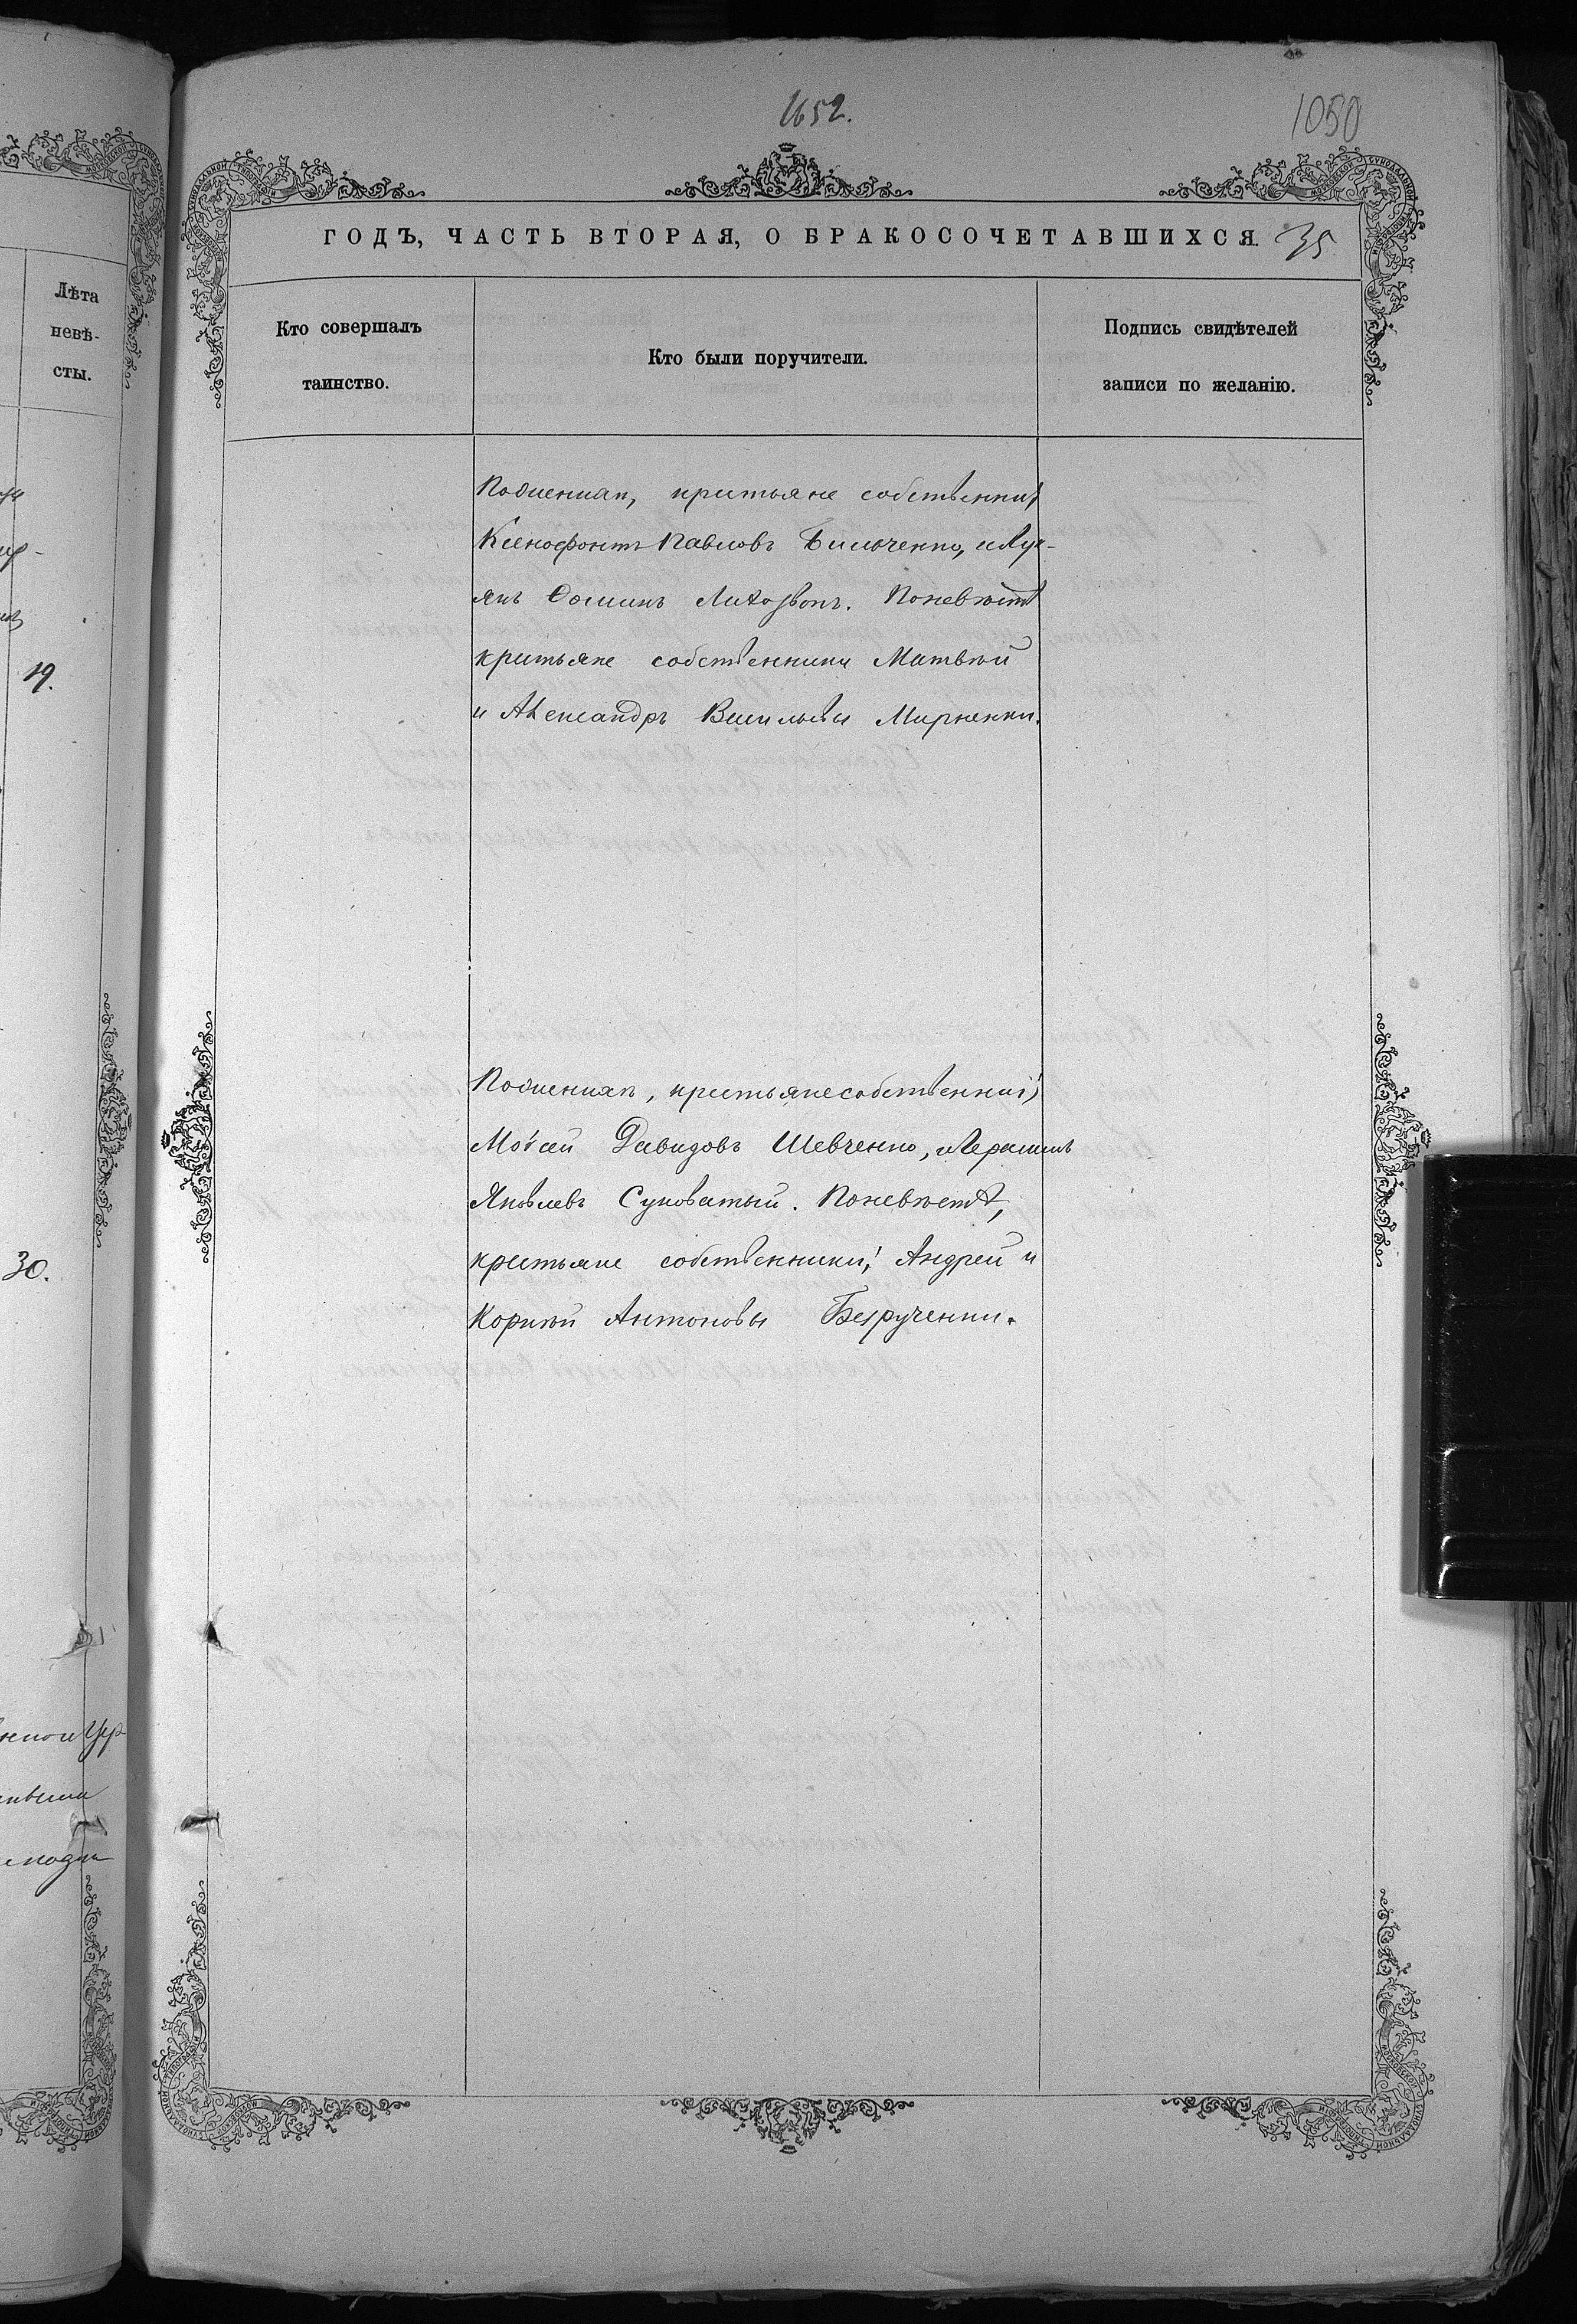 1652.
1050
ГОДЪ, ЧАСТЬ ВТОРАЯ, О БРАКОСОЧЕТАВШИХСЯ.
35
Лѣта
невѣ-
сты.
Кто совершалъ
таинство.
Кто были поручители.
Подпись свидѣтелей
записи по желанію.
крестьяне собственники
Ксенофонтъ Павловъ Бильченко, и Лук-
янъ Ѳоминъ Лихозвонъ. По невѣстѣ
крестьяне собственники Матвѣй
и Александръ Васильевы Мирненки.
19.
По женихѣ, крестьяне собственники,
Моѵсей Давидовъ Шевченко, и Герасимъ
Яковлевъ Суковатый. По невѣстѣ,
крестьяне собственники, Андрей и
Корнѣй Антоновы Безрученки.
30.